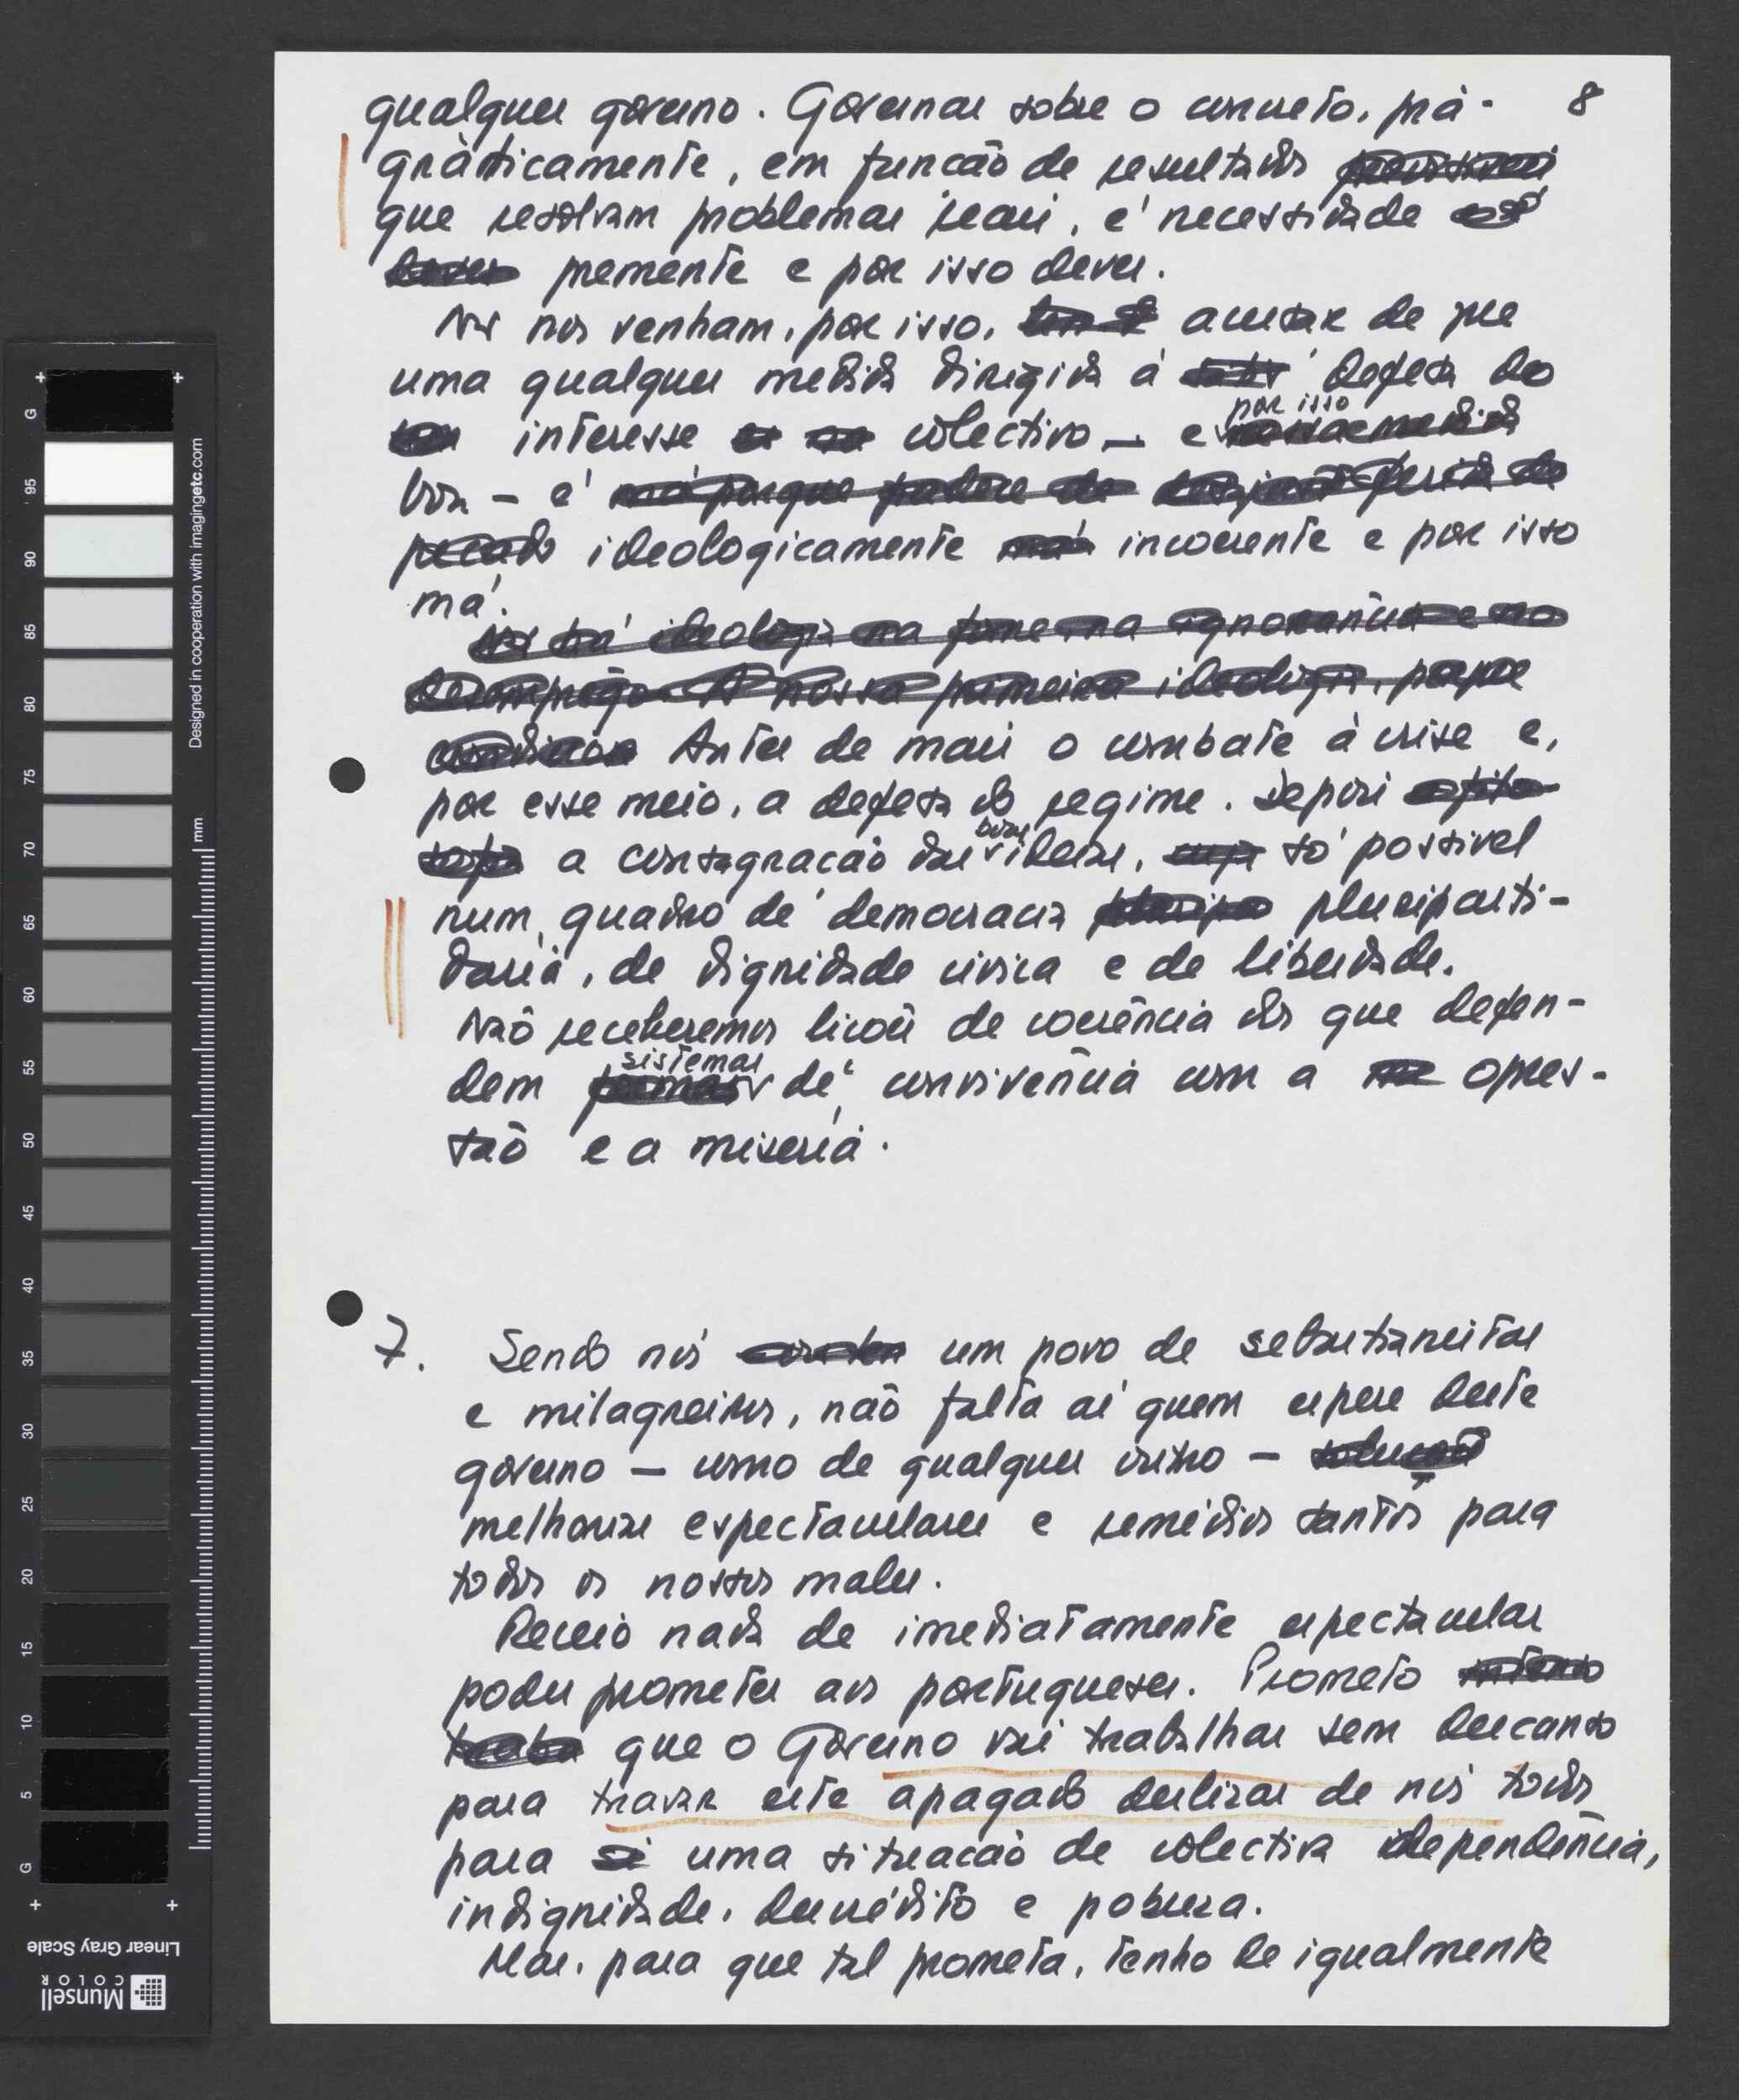 8
qualquer governo. Governar sobre o concreto, prà-
gràticamente, em função de resultados
que resolvam problemas reais, é necessidade
premente e por isso dever.
Não nos venham, por isso, acusar de que
uma qualquer medida dirigida à defesa do
interesse colectivo — e por isso
boa — é
pecado ideologicamente má incoerente e por isso
má.
Não há ideologia na fome, na ignorância e no
desemprego. A nossa primeira ideologia, porque
Antes de mais o combate à crise e,
por esse meio, a defesa do regime. Depois
a consagração das boas ideias, só possível
num quadro de democracia pluriparti-
dária, de dignidade cívica e de liberdade.
Não receberemos lições de coerência dos que defen-
dem formas sistemas de convivência com a opres-
são e a miséria.
7. Sendo nós um povo de sebastianistas
e milagreiros, não falta aí quem espere deste
governo — como de qualquer outro — soluções
melhorias espectaculares e remédios santos para
todos os nossos males.
Receio nada de imediatamente espectacular
poder prometer aos portugueses. Prometo
que o Governo vai trabalhar sem descanso
para travar este apagado deslizar de nós todos
para uma situação de colectiva dependência,
indignidade, descrédito e pobreza.
Mas, para que tal prometa, tenho de igualmente
Designed in cooperation with imagingetc.com
mm
G 95 90 85 80 75 70 65 60 55 50 45 40 35 30 25 20 15 10 5 G
Linear Gray Scale
Munsell
COLOR